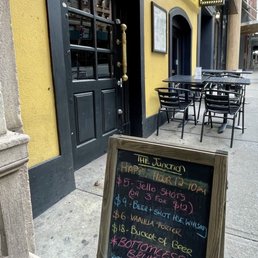 THE JUNCTION
HAPPY HOUR 12-10PM
$5- JELLO SHOTS
(OR 3 FOR $12)
$4- BEER + SHOT
$6- VANILLA PORTER
$18- BUCKET OF BEER
BOTTOMLESS